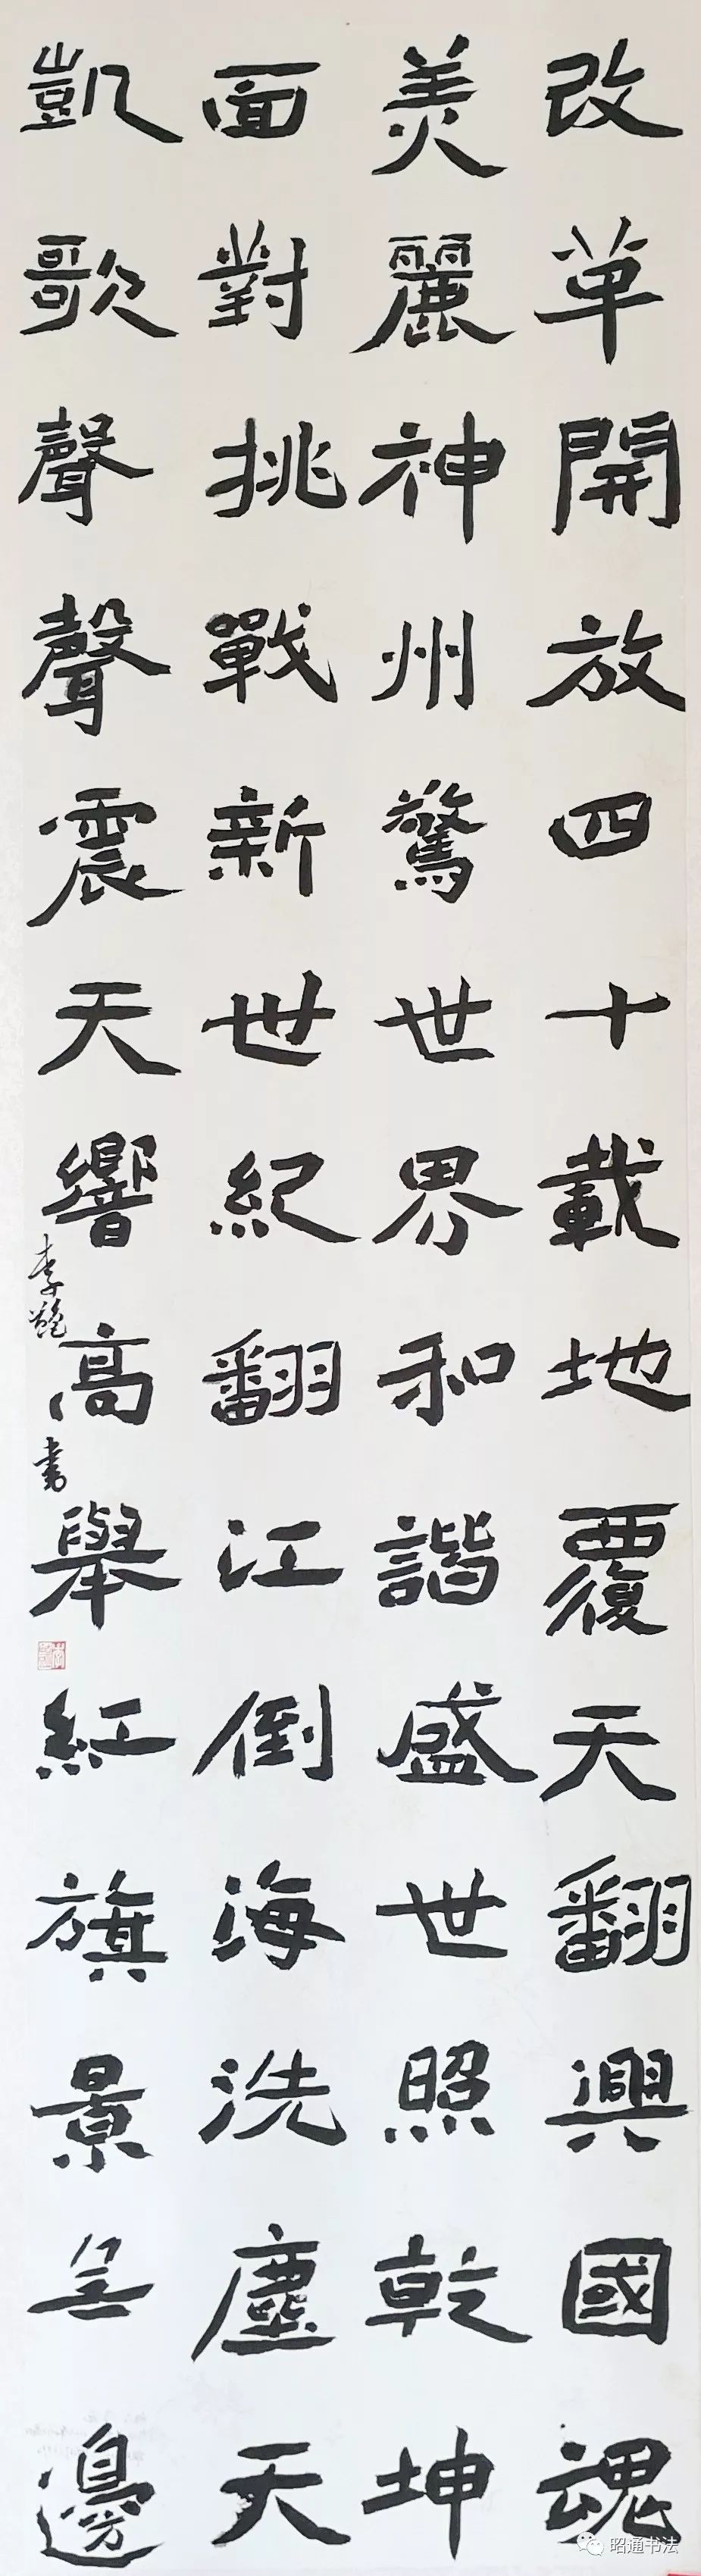 改革開放四十載地覆天翻興國魂
美麗神州驚世界和諧盛世照乾坤
面對挑戰新世紀翻江倒海洗塵天
凱歌聲聲震天響高舉紅旗景無邊
李艷书
昭通书法